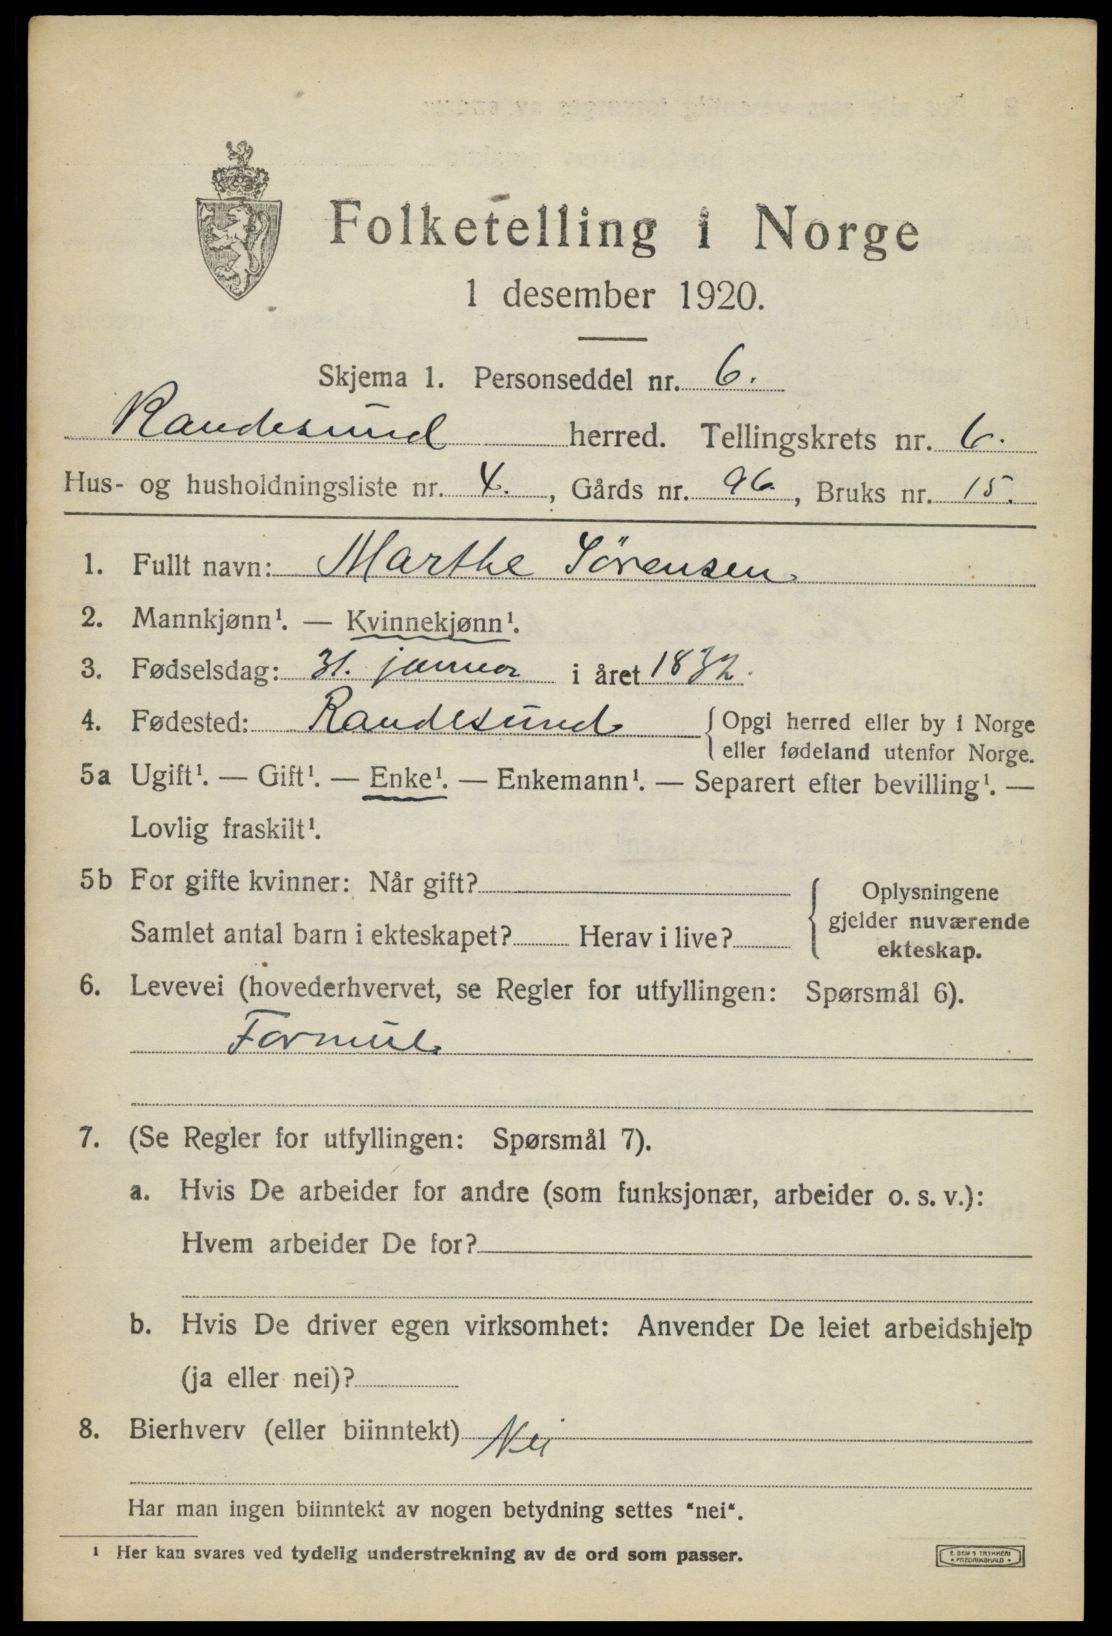 Folketelling i Norge
1 desember 1920.
Skjema 1. Personseddel nr. 6.
Randesund herred. Tellingskrets nr. 6.
Hus- og husholdningsliste nr. 4., Gårds nr. 96., Bruks nr. 15.
1. Fullt navn: Marthe Sørensen.
2. Mannkjønn¹. — Kvinnekjønn¹.
3. Fødselsdag: 31. januar i året 1832.
4. Fødested: Randesund {Opgi herred eller by i Norge
eller fødeland utenfor Norge.
5a Ugift¹. — Gift¹. — Enke¹. — Enkemann¹. — Separert efter bevilling¹. —
Lovlig fraskilt¹.
5b For gifte kvinner: Når gift? { Oplysningene
gjelder nuværende
Samlet antal barn i ekteskapet? Herav i live?
ekteskap.
6. Levevei (hovederhvervet, se Regler for utfyllingen: Spørsmål 6).
Formue
7. (Se Regler for utfyllingen: Spørsmål 7).
a. Hvis De arbeider for andre (som funksjonær, arbeider o. s. v.):
Hvem arbeider De for?
b. Hvis De driver egen virksomhet: Anvender De leiet arbeidshjelp
(ja eller nei)?
8. Bierhverv (eller biinntekt) Nei
Har man ingen biinntekt av nogen betydning settes "nei".
¹ Her kan svares ved tydelig understrekning av de ord som passer.